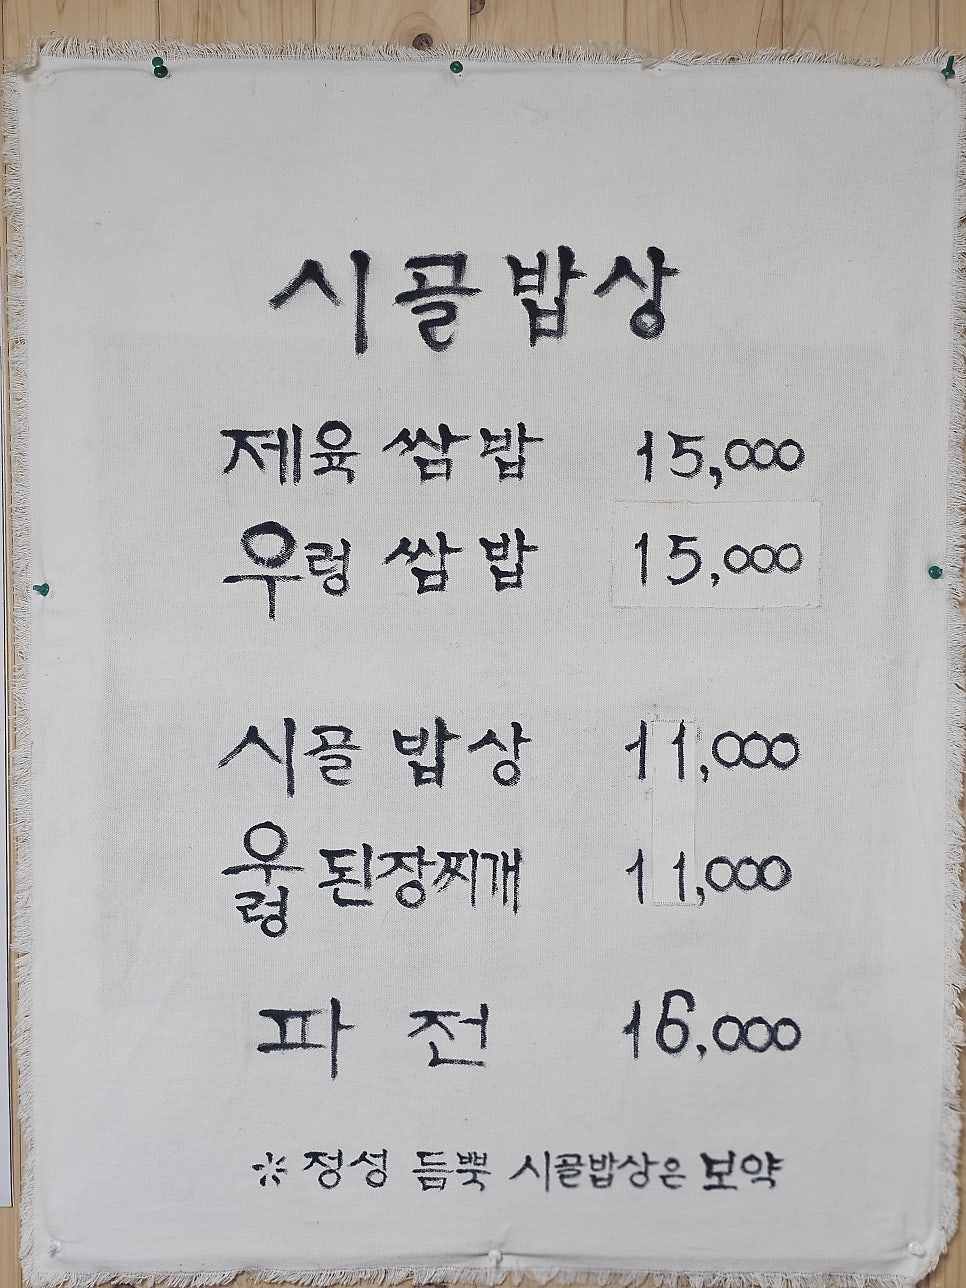 시골밥상
제육 쌈밥 15,000
우렁 쌈밥 15,000
시골 밥상 11,000
우렁 된장찌개 11,000
파전 16,000
※ 정성 듬뿍 시골밥상은 보약